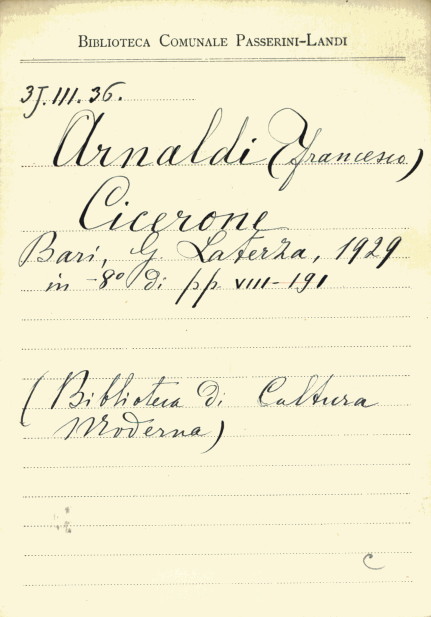 BIBLIOTECA COMUNALE PASSERINI-LANDI
3J.III.36.
Arnaldi (Francesco)
Cicerone
Bari, G. Laterza, 1929
in -8º di pp VIII-191
(Biblioteca di Cultura
Moderna)
C